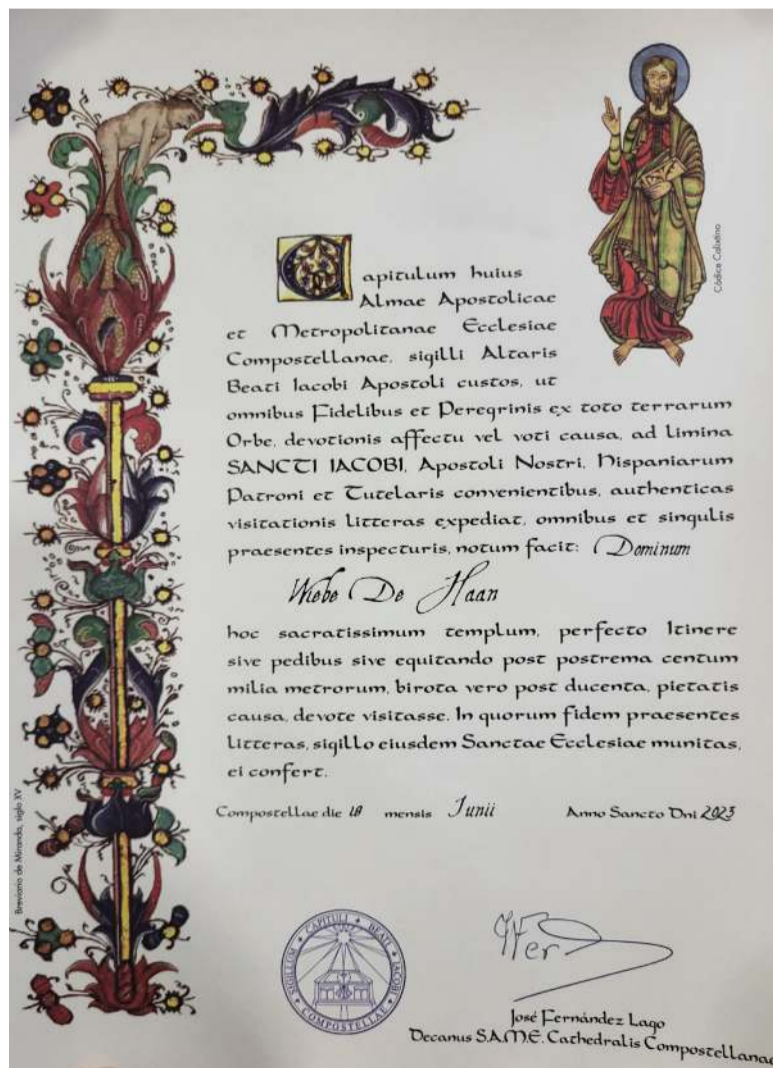 Capitulum huius
Almae Apostolicae
et Metropolitanae Ecclesiae
Compostellanae, sigilli Altaris
Beati Iacobi Apostoli custos, ut
omnibus Fidelibus et Peregrinis ex toto terrarum
Orbe, devotionis affectu vel voti causa, ad limina
SANCTI IACOBI, Apostoli Nostri, Hispaniarum
Patroni et Tutelaris convenientibus, authenticas
visitationis litteras expediat, omnibus et singulis
praesentes inspecturis, notum facit: Dominum
Wiebe De Haan
hoc sacratissimum templum, perfecto Itinere
sive pedibus sive equitando post postrema centum
milia metrorum, birota vero post ducenta, pietatis
causa, devote visitasse. In quorum fidem praesentes
litteras, sigillo eiusdem Sanctae Ecclesiae munitas,
ei confert.
Compostellae die 18 mensis Junii Anno Sancto Dni 2023
Códice Calixtino
Breviario de Miranda, siglo XV
SIGILLUM CAPITULI BEATI IACOBI COMPOSTELLAE
José Fernández Lago
Decanus S.A.M.E. Cathedralis Compostellanae